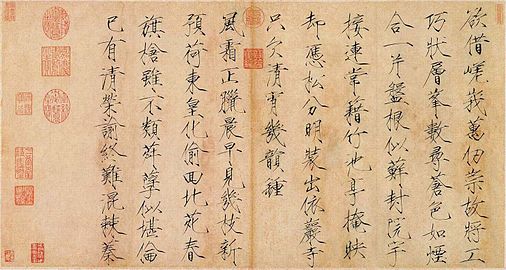 欲借嵯峩萬仞崇故將工
巧狀層峯數尋蒼色如煙
合一片盤根似蘚封院宇
接連常藉竹池亭掩映
却應松分明裝出依巖寺
只欠清宵幾韻鍾
風霜正臘晨早見幾枝新
預荷東皇化偷回北苑春
旗槍雖不類荈蘖似堪倫
已有清榮諭終難混棘蓁